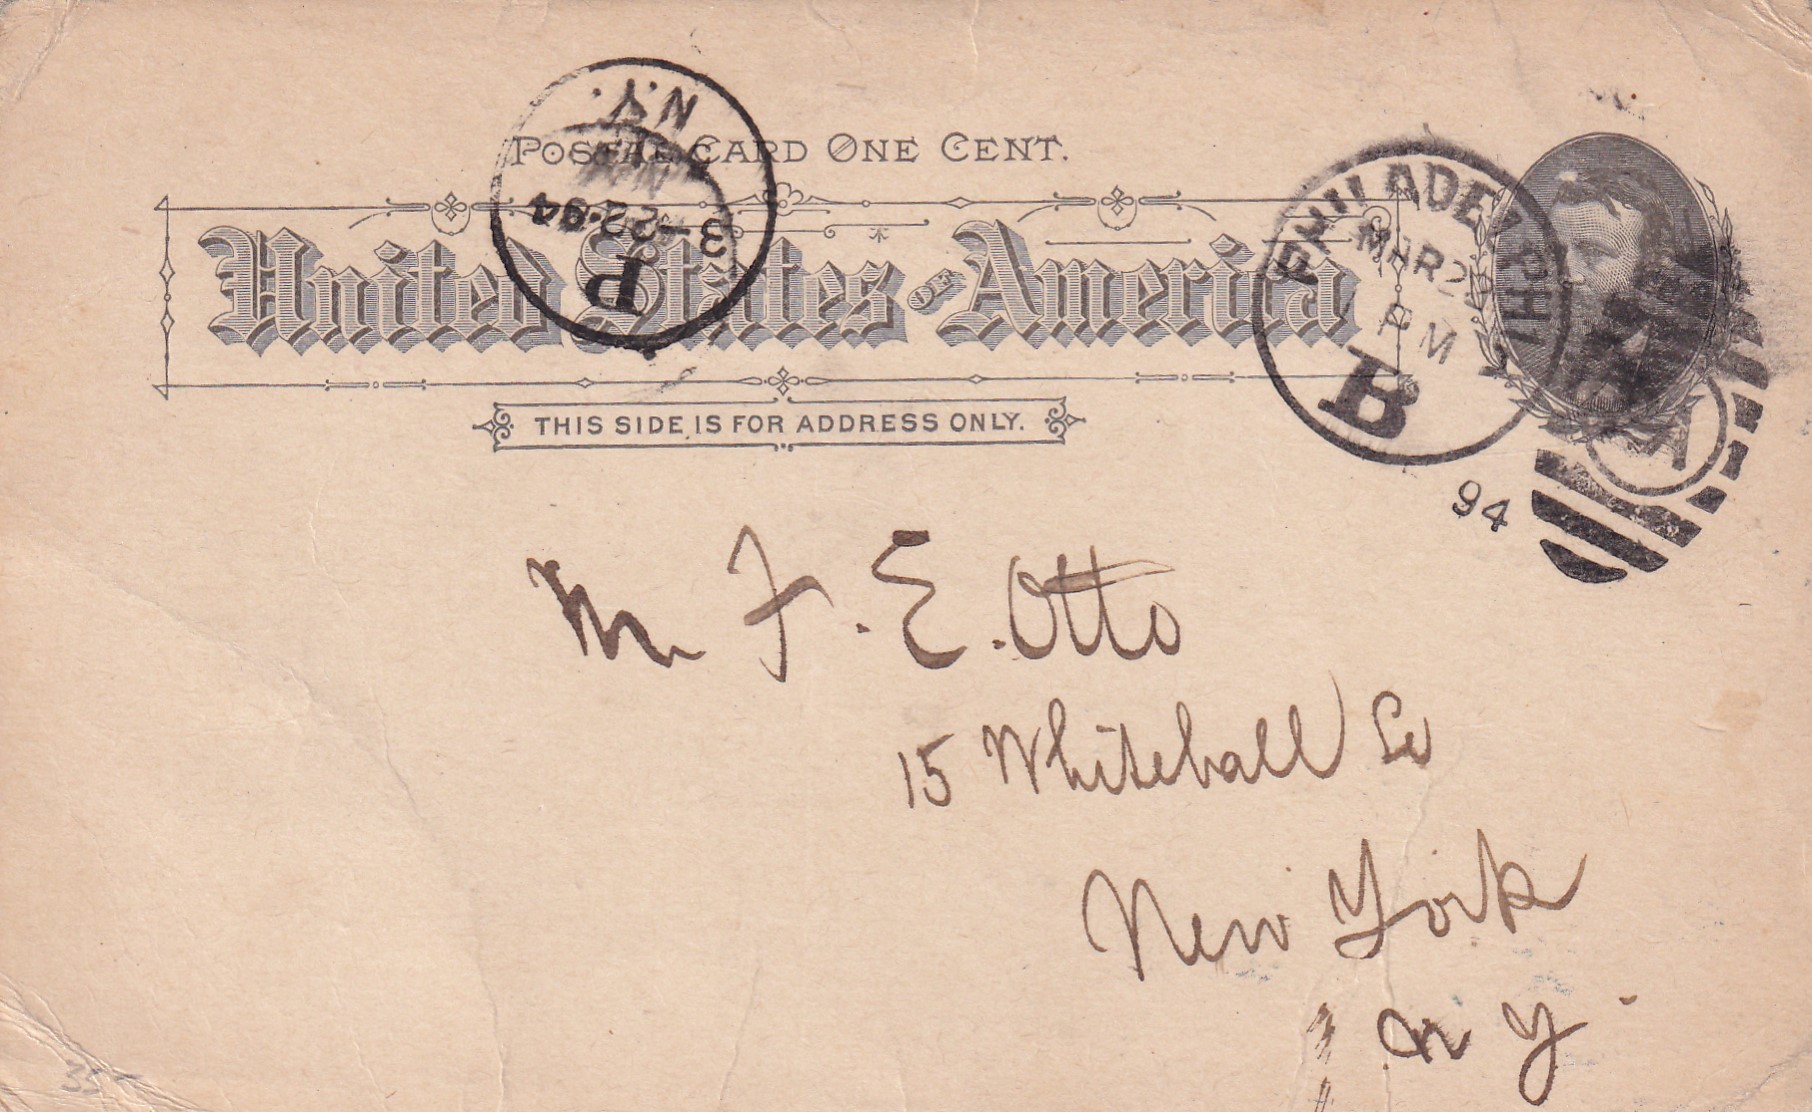 POSTAL CARD ONE CENT.
United States OF America
THIS SIDE IS FOR ADDRESS ONLY.
N.Y.
3-22-94
P
PHILADELPHIA
MAR 2
PM
B
94
Mr F. E. Otto
15 Whitehall St
New York
N Y
35-